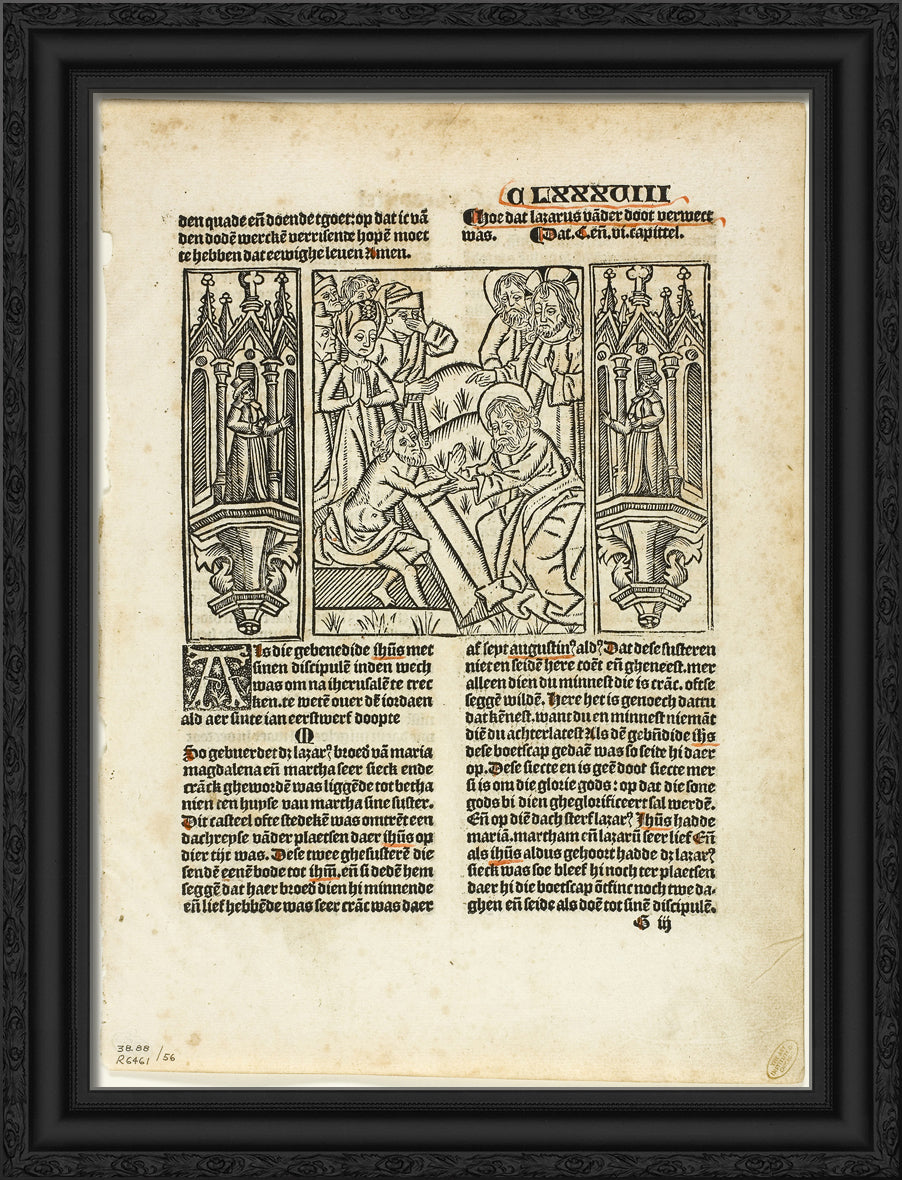 C LXXXVIII
den quade eñ doende tgoet: op dat ic vā
den dodē werckē verrisende hopē moet
te hebben dat eewighe leuen Amen.
¶hoe dat lazarus vāder doot verwect
was. ¶Dat .C. eñ. vi. capittel.
Als die gebenedide ihūs met
sinen discipulē inden wech
was om na iherusalē te trec
ken. te wetē ouer dē iordaen
ald aer sinte ian eerstwerf doopte
So gebuerdet dz lazarꝰ broed vā maria
magdalena eñ martha seer sieck ende
crāck ghewordē was liggēde tot betha
nien ten huyse van martha sine suster.
Dit casteel ofte stedekē was omtrēt een
dachreyse vāder plaetsen daer ihūs op
dier tijt was. Dese twee ghesusterē die
sendē eenē bode tot ihm̄. eñ si dedē hem
seggē dat haer broed dien hi minnende
eñ lief hebbēde was seer crāc was daer
af sept augustinꝰ aldꝰ Dat dese susteren
niet en seidē here coēt eñ gheneest. mer
alleen dien du minnest die is crāc. oftse
seggē wildē. Here het is genoech dattu
dat kēnest. want du en minnest niemāt
diē du achterlatest Als dē gebñdide ihs
dese boetscap gedaē was so seide hi daer
op. Dese siecte en is geē doot siecte mer
si is om die glorie gods: op dat die sone
gods bi dien gheglorificeert sal werdē.
Eñ op diē dach sterf lazarꝰ Ihūs hadde
mariā. martham eñ lazarū seer lief Eñ
als ihūs aldus gehoort hadde dz lazarꝰ
sieck was soe bleef hi noch ter plaetsen
daer hi die boetscap ōtfinc noch twe da-
ghen eñ seide als doē tot sinē discipulē.
G iij
38.88
R6461 /56